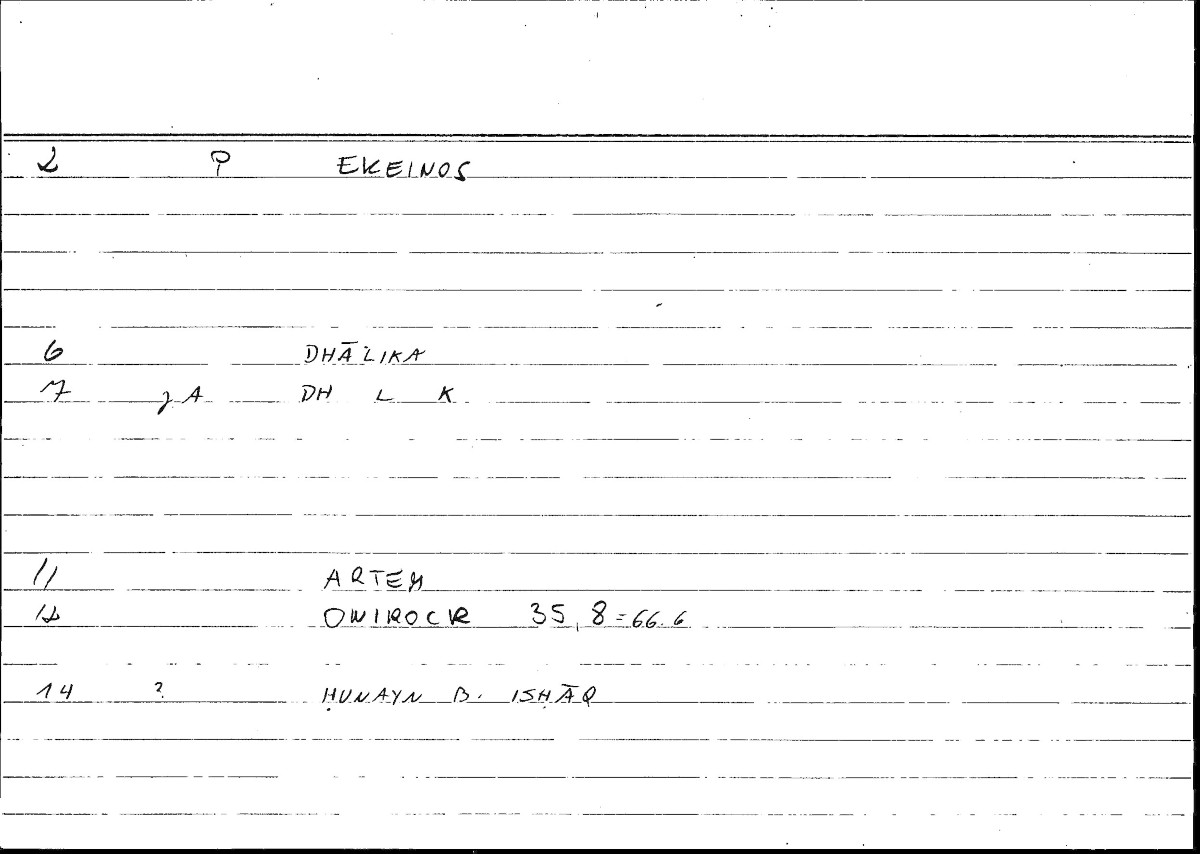 2 P EKEINOS
6 DHĀLIKA
7 gA DH L K
11 ARTEM
12 ONIROCR 35,8=66.6
14 ? ḤUNAYN B. ISḤĀQ